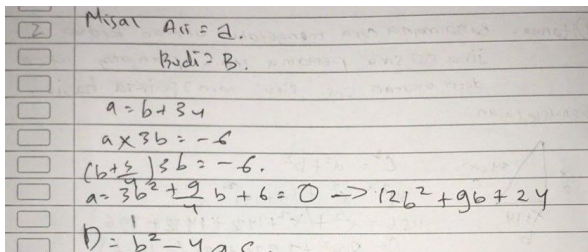 2 Misal Ari = a.
Budi = B.
a = b + 34
a x 3b = -6
(b + 3/4) 3b = -6.
a = 3b² + 9/4 b + 6 = 0 -> 12b² + 9b + 24
D = b² - 4ac